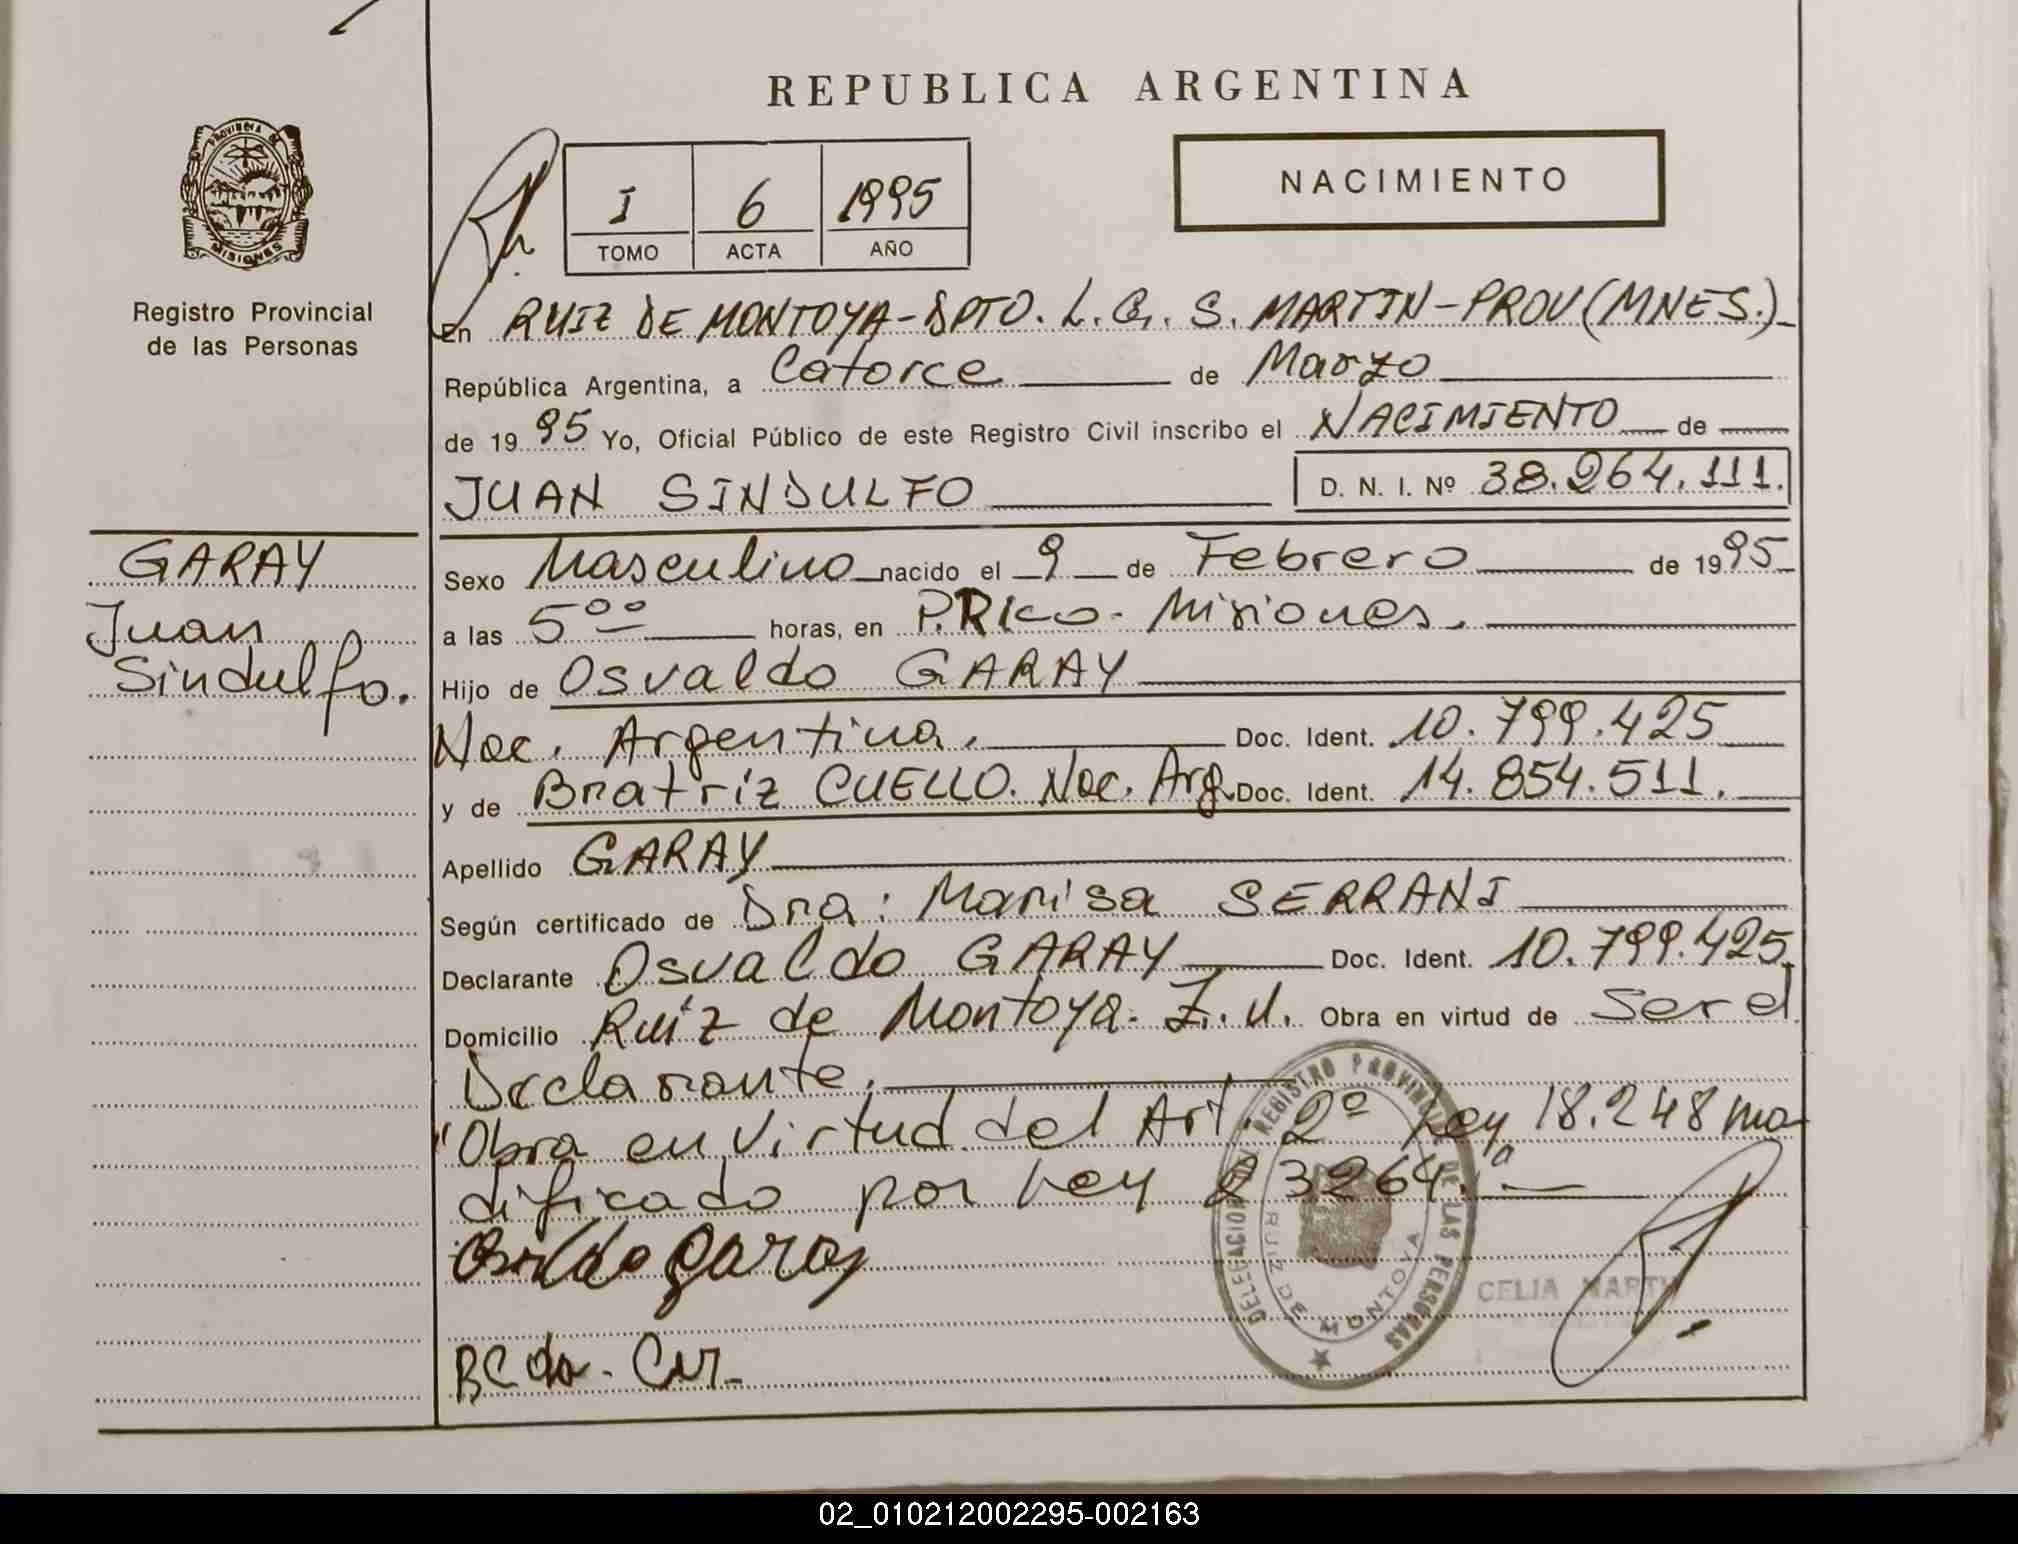 REPUBLICA ARGENTINA
PROVINCIA DE
MISIONES
Registro Provincial
de las Personas
I 6 1995
TOMO ACTA AÑO
NACIMIENTO
En RUIZ DE MONTOYA-DPTO. L. G. S. MARTIN-PROV (MNES.)
República Argentina, a Catorce de Marzo
de 1995 Yo, Oficial Público de este Registro Civil inscribo el NACIMIENTO de
JUAN SINDULFO D. N. I. Nº 38.264.111.
GARAY
Juan
Sindulfo.
Sexo Masculino nacido el 9 de Febrero de 1995
a las 5oo horas, en P.Rico- Misiones.
Hijo de Osvaldo GARAY
Nac. Argentina. Doc. Ident. 10.799.425
y de Beatriz CUELLO. Nac. Arg. Doc. Ident. 14.854.511.
Apellido GARAY
Según certificado de Dra: Marisa SERRANI
Declarante Osvaldo GARAY Doc. Ident. 10.799.425
Domicilio Ruíz de Montoya. Z.U. Obra en virtud de Ser el
Declarante.
"Obra en virtud del Art. 2º Ley 18.248 mo
dificado por Ley 23264."
Osvaldo Garay
DELEGACION REGISTRO PROVINCIAL DE LAS PERSONAS
RUIZ DE MONTOYA
CELIA
02_010212002295-002163